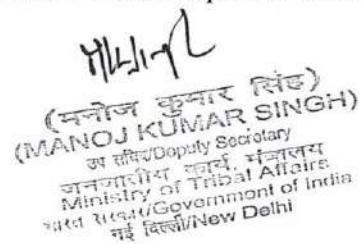 (मनोज कुमार सिंह)
(MANOJ KUMAR SINGH)
उप सचिव/Deputy Secretary
जनजातीय कार्य मंत्रालय
Ministry of Tribal Affairs
भारत सरकार/Government of India
नई दिल्ली/New Delhi